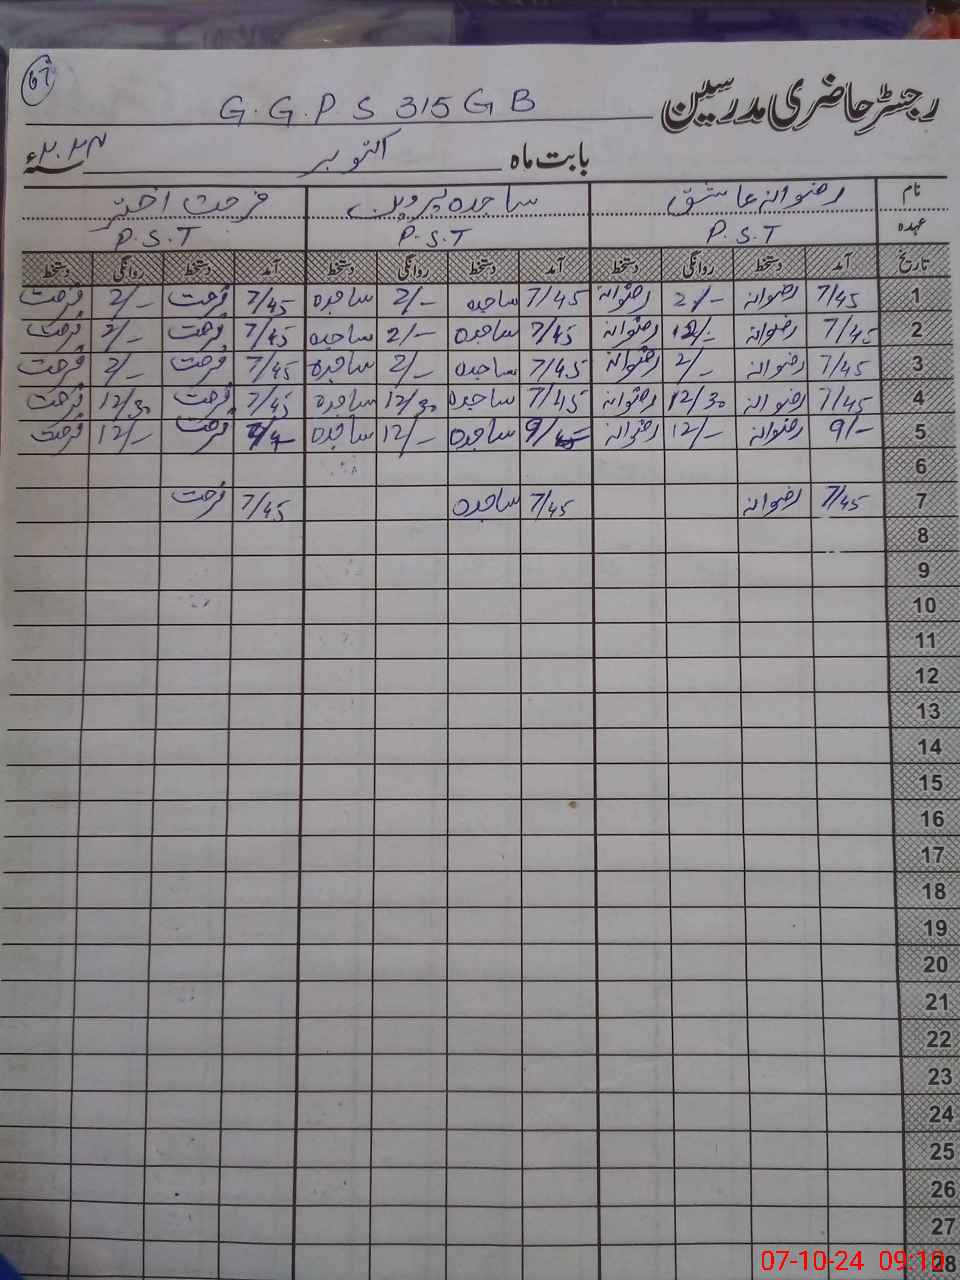 رجسٹر حاضری مدرسین G.G.P.S 315 GB
بابت ماہ اکتوبر سنہ ۲۰۲۴ء
نام رضوانہ عاشق ساجدہ پروین فرحت اختر
عہدہ P.S.T P.S.T P.S.T
تاریخ آمد دستخط روانگی دستخط آمد دستخط روانگی دستخط آمد دستخط روانگی دستخط
1 7/45 رضوانہ 2/- رضوانہ 7/45 ساجدہ 2/- ساجدہ 7/45 فرحت 2/- فرحت
2 7/45 رضوانہ رضوانہ 7/45 ساجدہ 2/- ساجدہ 7/45 فرحت 2/- فرحت
3 7/45 رضوانہ 2/- رضوانہ 7/45 ساجدہ 2/- ساجدہ 7/45 فرحت 2/- فرحت
4 7/45 رضوانہ 12/30 رضوانہ 7/45 ساجدہ 12/30 ساجدہ 7/45 فرحت 12/30 فرحت
5 9/- رضوانہ 12/- رضوانہ ساجدہ 12/- ساجدہ فرحت 12/- فرحت
6
7 7/45 رضوانہ 7/45 ساجدہ 7/45 فرحت
8
9
10
11
12
13
14
15
16
17
18
19
20
21
22
23
24
25
26
27
28
07-10-24